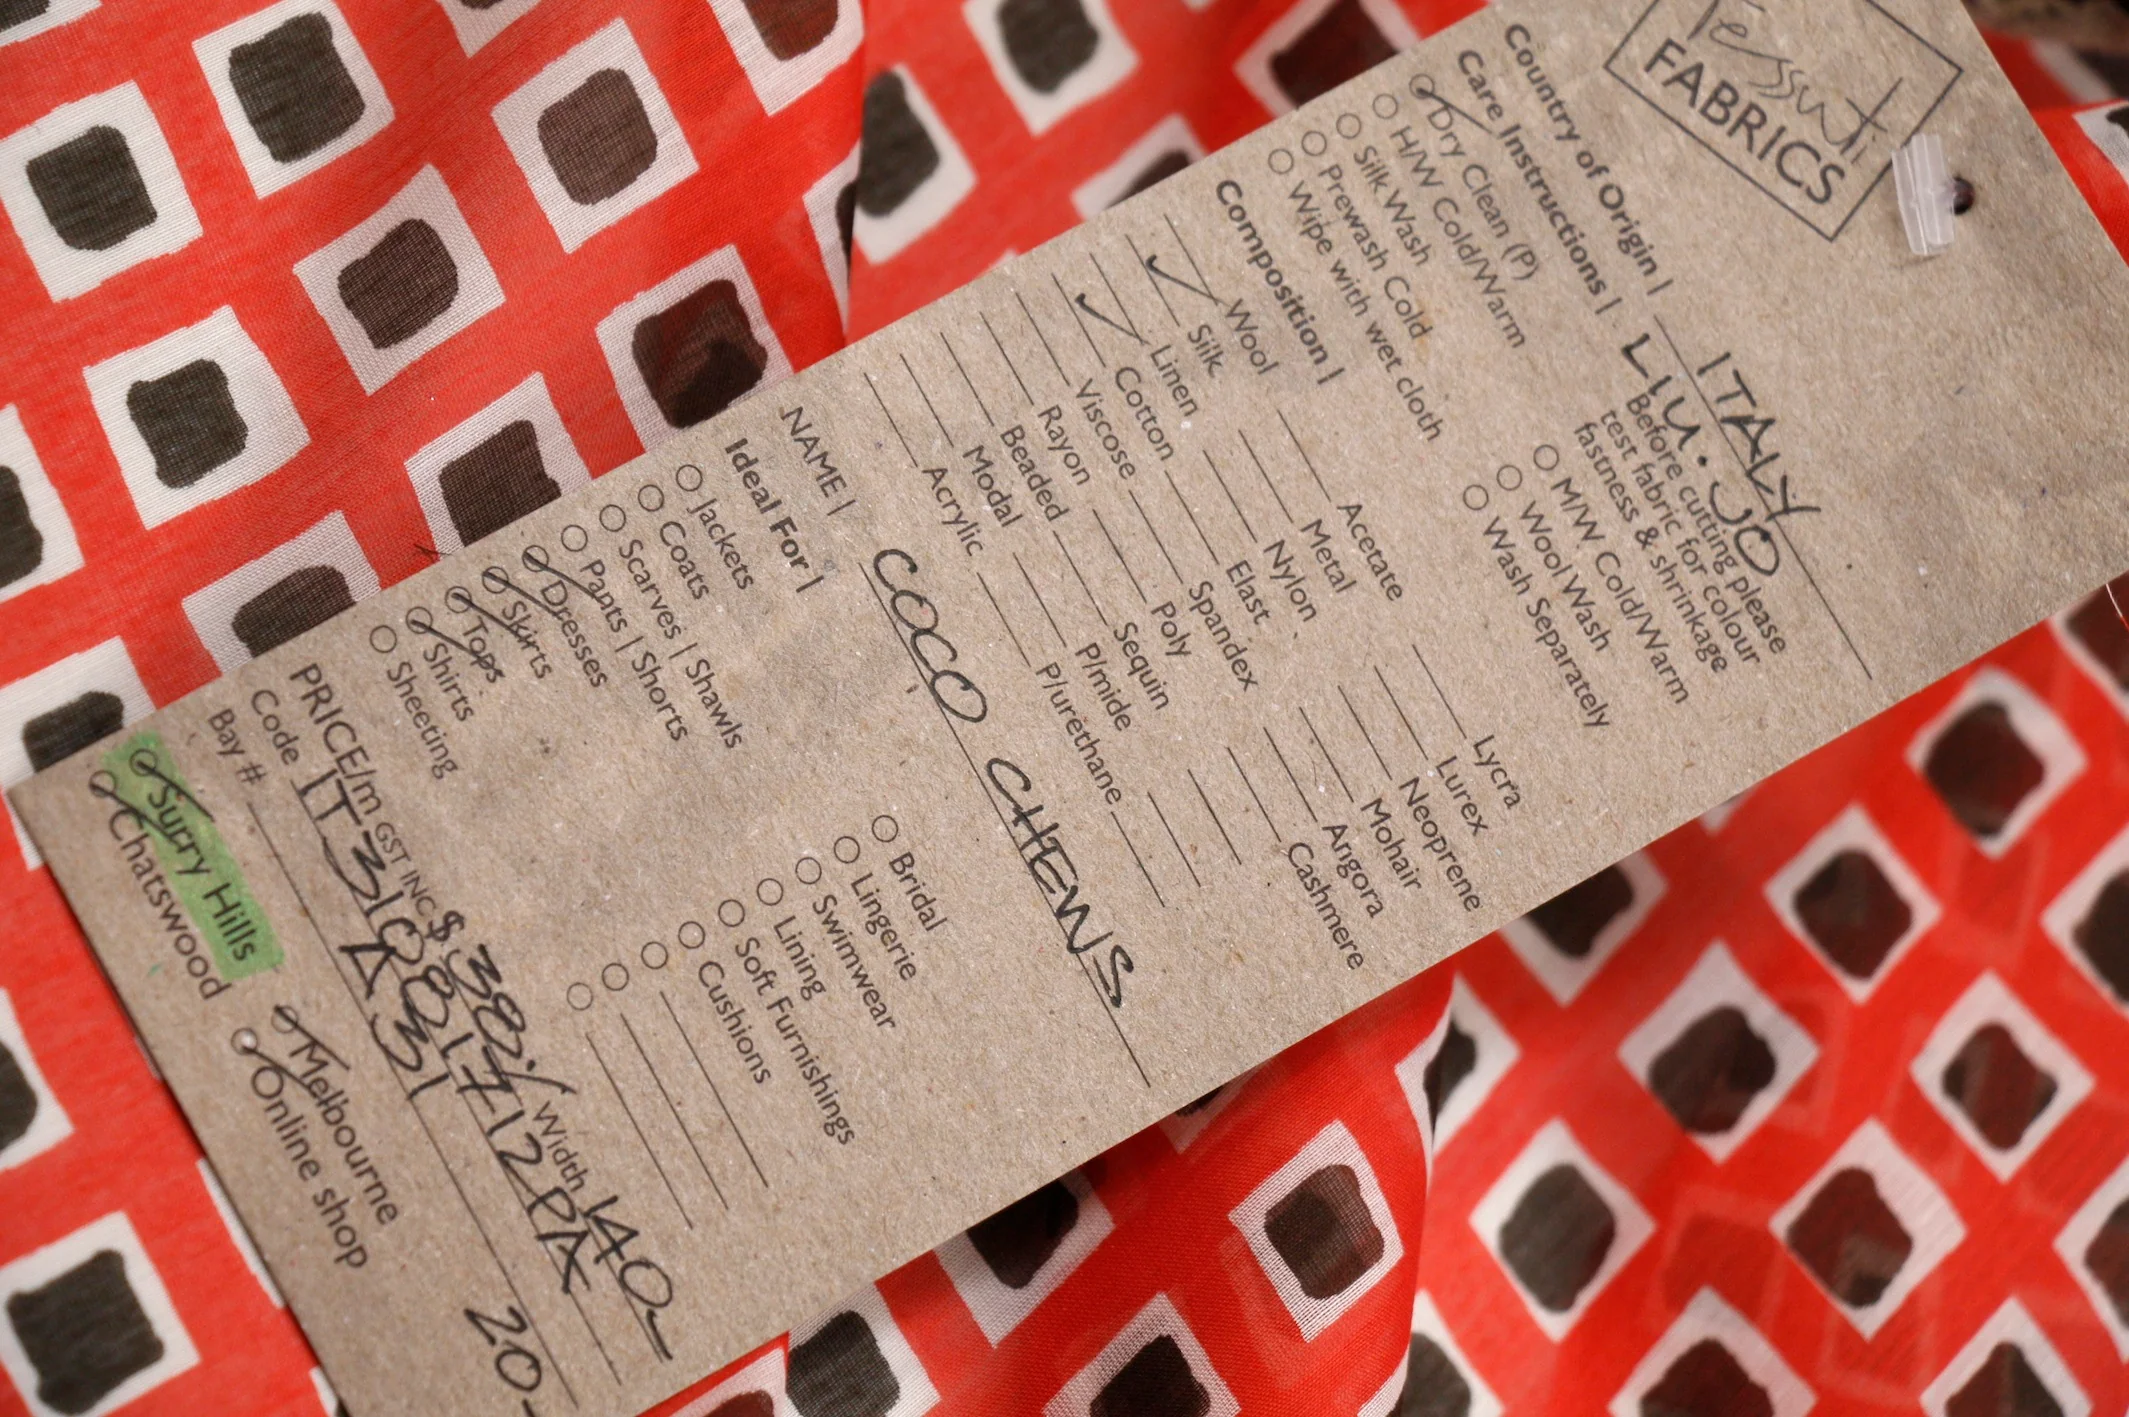 Tessuti
FABRICS
Country of Origin | ITALY
Care Instructions | LIU.JO
Dry Clean (P)
H/W Cold/Warm
Silk Wash
Prewash Cold
Wipe with wet cloth
Before cutting please
test fabric for colour
fastness & shrinkage
M/W Cold/Warm
Wool Wash
Wash Separately
Composition |
Wool Acetate Lycra
Silk Metal Lurex
Linen Nylon Neoprene
Cotton Elast Mohair
Viscose Spandex Angora
Rayon Poly Cashmere
Beaded Sequin
Modal P/mide
Acrylic P/urethane
NAME | COCO CHEWS
Ideal For |
Jackets Bridal
Coats Lingerie
Scarves | Shawls Swimwear
Pants | Shorts Lining
Dresses Soft Furnishings
Skirts Cushions
Tops
Shirts
Sheeting
PRICE/m GST INC $ 38 Width 140
Code IT-31081712PA
Bay # A31 20
Surry Hills Melbourne
Chatswood Online shop